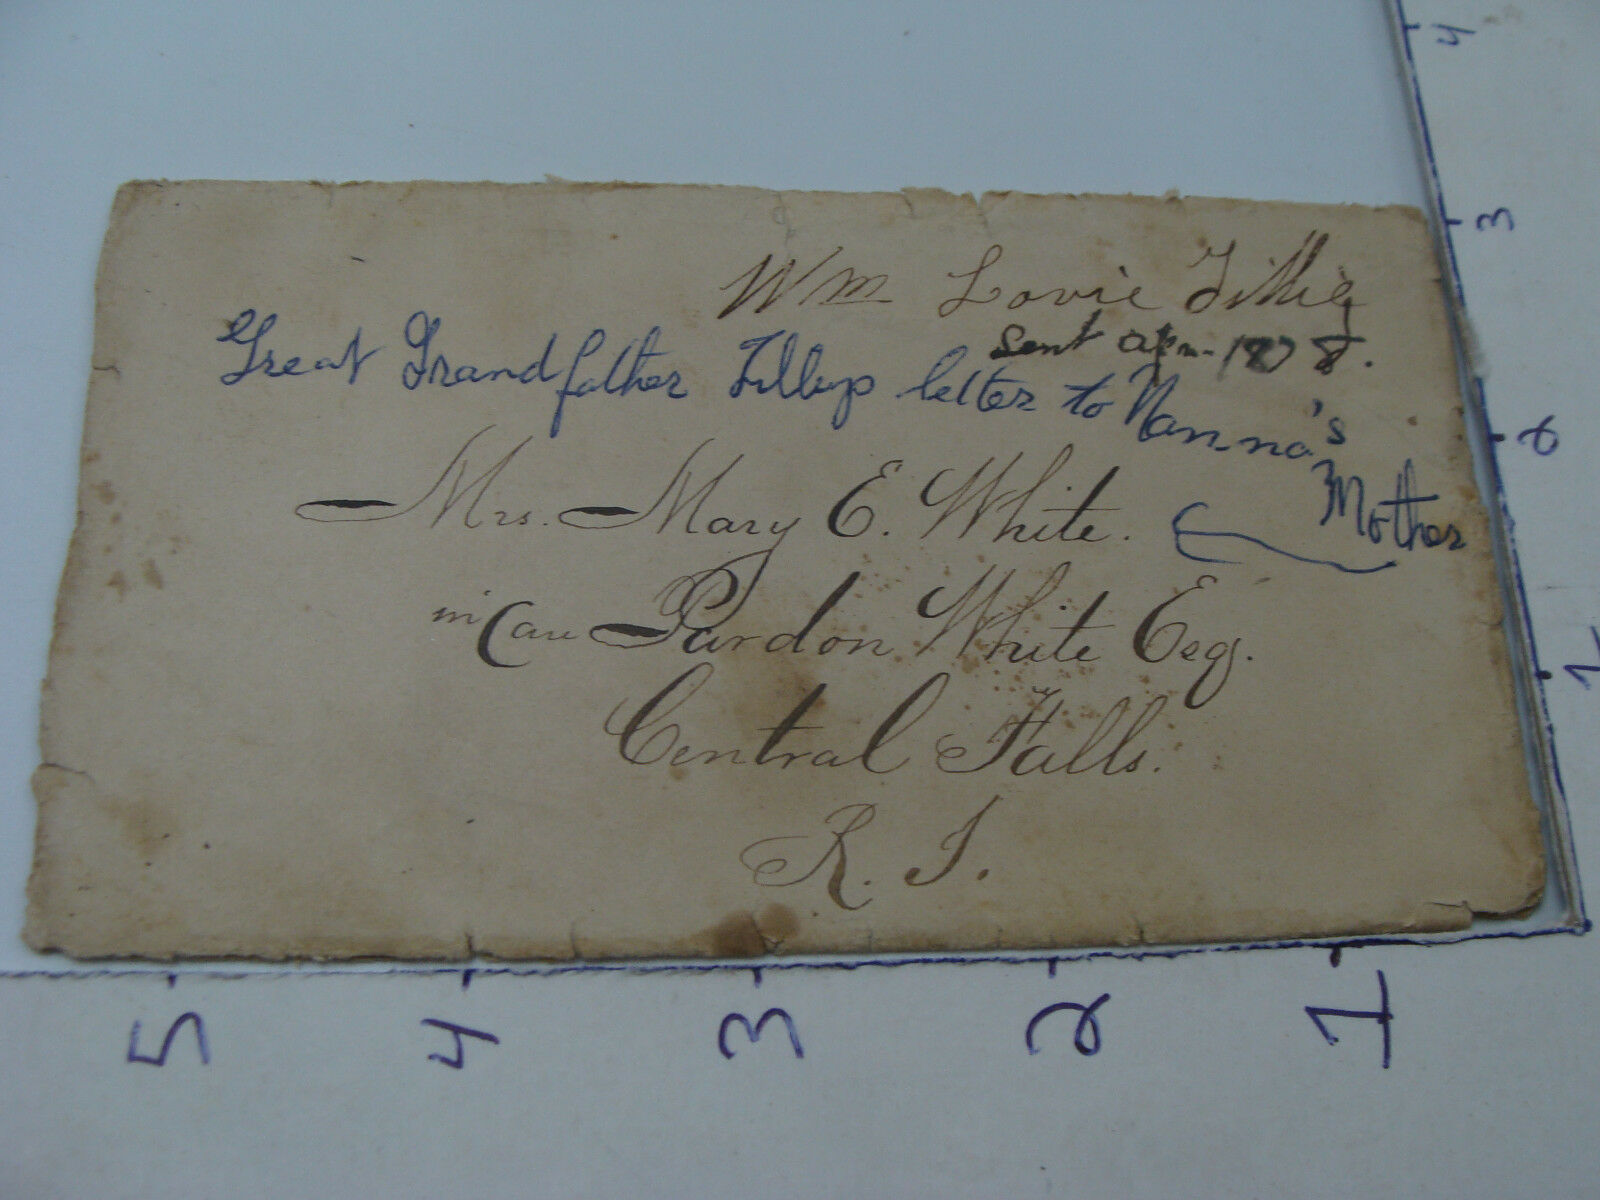 Wm Lovie
sent apr. 1878.
Great Grandfather letter to Nanna's
Mother
Mrs. Mary E. White.
in Care Pardon White Esq.
Central Falls.
R. I.
4
3
2
1
5 4 3 2 1